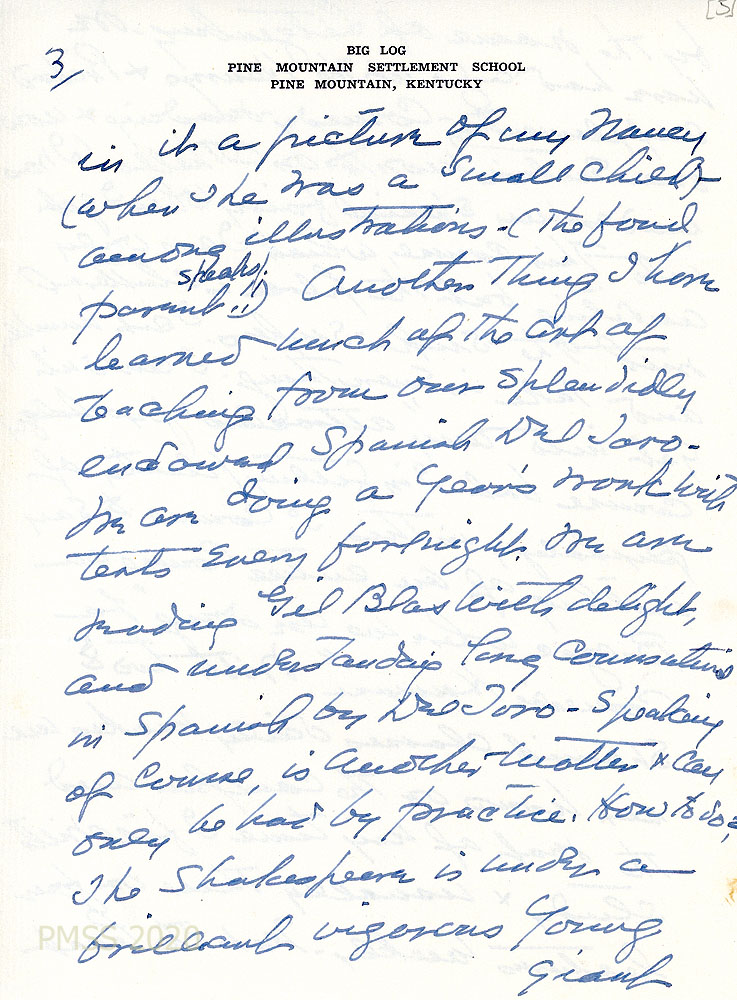 [3]
3/
BIG LOG
PINE MOUNTAIN SETTLEMENT SCHOOL
PINE MOUNTAIN, KENTUCKY
in it a picture of my Nancy
(when she was a small child)
among illustrations - (The fond
speaks!
parent!!) Another Thing I have
learned much of the art of
teaching from our splendidly
endowed Spanish Del Toro -
We are doing a year's work with
tests every fortnight. We are
reading Gil Blas with delight,
and understanding long
in Spanish by Del Toro - Speaking
of course is another matter & can
only be had by practice. How to do?
The Shakespeare is under a
brilliant vigorous young
Giant
PMSS 2020